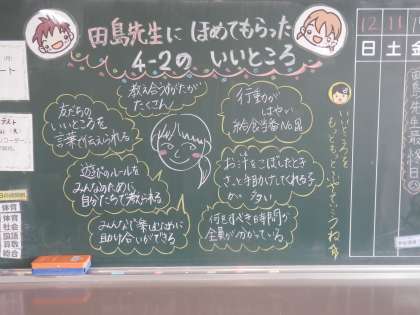 田島先生に ほめてもらった
4-2の いいところ
教え合うすがたが
たくさん!
友だちの
いいところを
言葉で伝えられる
遊びのルールを
みんなのために
自分たちで考えられる
みんなで楽しむために
助け合いができる
行動が
はやい
給食当番No.1
お汁をこぼしたとき
さっと手助けしてくれる子
が 多い
何をすべき時間か
全員が分かっている
いいところを
もっともっとふやそうね
12
11
日
土
金
体育
体育
社会
国語
算数
総合